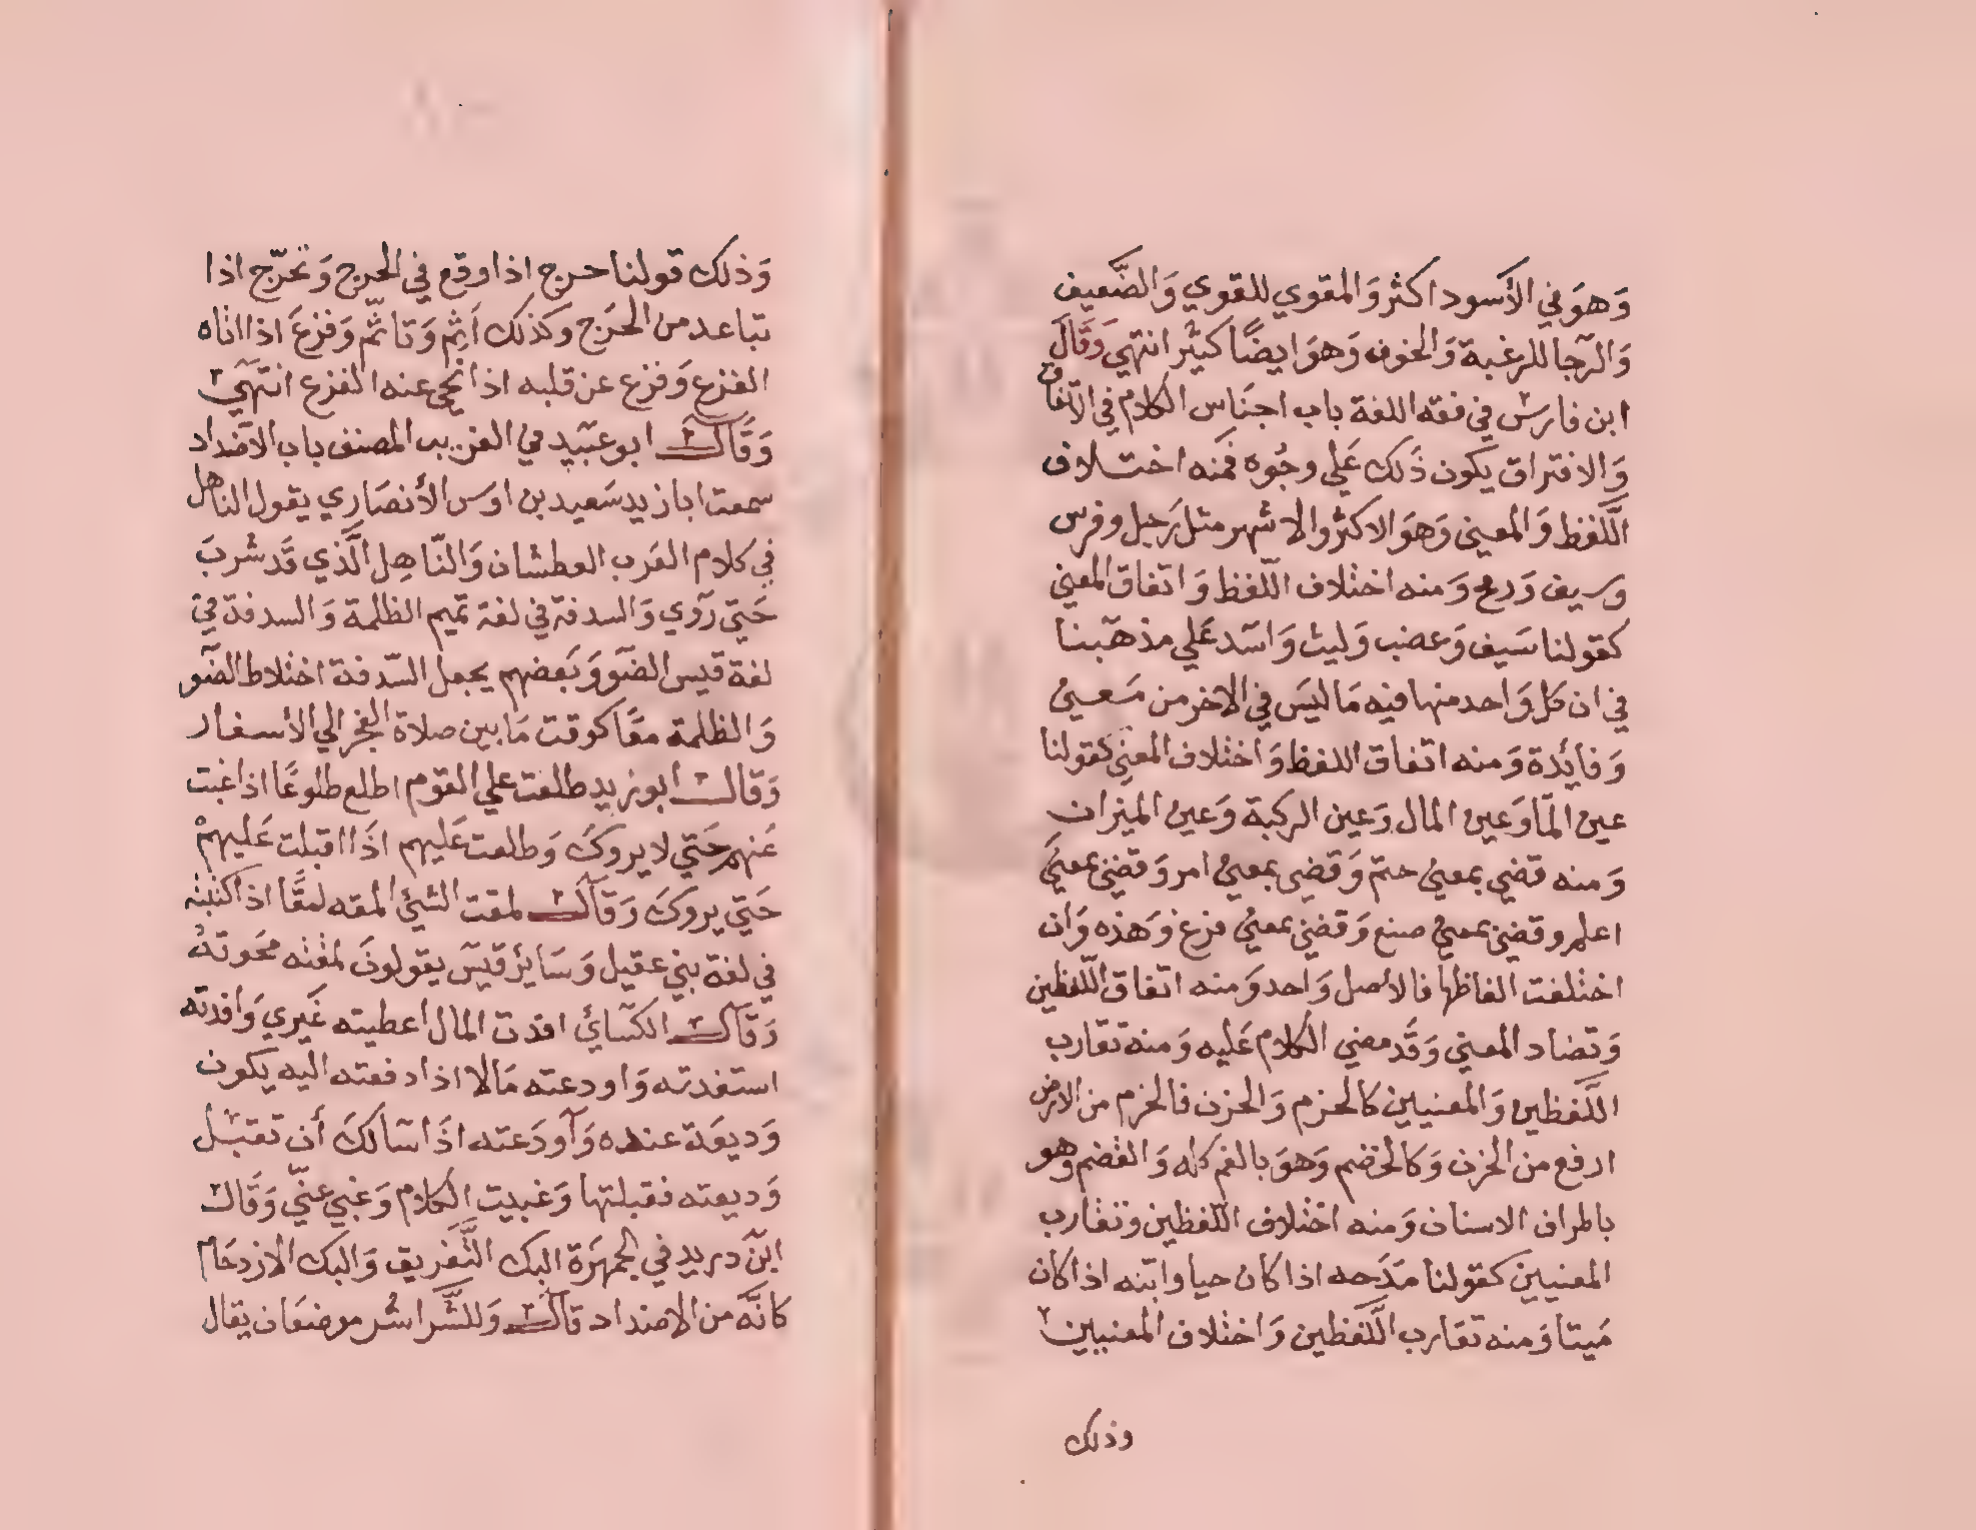 وَهوَ في الأسود اكثر وَالمقوي للقوي وَالضَّعيف
وَالرّجا للرغبة وَالخوف وَهوَ ايضًا كثير انتهي وَقَالَ
ابن فارس في فقه اللغة باب اجنَاس الكلام في الاتفاق
وَالافتراق يكون ذَلك عَلي وجُوه فمنه اختلاف
اللَّفظ وَالمعني وَهوَ الاكثر والاشهر مثل رَجل وفرس
وسيف وَرمح وَمنه اختلاف اللّفظ وَاتفاق المعني
كقولنا سَيف وَعضب وَليث وَاسَد عَلي مذهَبنا
في ان كل وَاحد منها فيه مَا ليسَ في الاخر من مَعني
وَفائِدة وَمنه اتفاق اللفظ وَاختلاف المعني كقولنا
عين المَا وَعين المال وَعين الركبة وَعين الميزان
وَمنه قضي بمعني حتم وَقضي بمعني امر وَقضي بمعني
اعلم وقضي بمعني صنع وَقضي بمعني فرغ وَهذه وَان
اختلفت الفاظها فالأصل وَاحد وَمنه اتفاق اللّفظين
وَتضاد المعني وَقَد مضي الكلام عَليه وَمنه تقارب
اللَّفظين وَالمعنيين كالحزم وَالحزن فالحزم من الارض
ارفع من الحزن وَكالخضم وَهوَ بالفم كله وَالقضم وهو
باطراف الاسنان وَمنه اختلاف اللّفظين وتقارب
المعنيين كقولنا مَدَحه اذا كان حيا وابّنه اذا كان
مَيتا وَمنه تقارب اللَّفظين وَاختلاف المعنيين
وذلك
وَذلك قولنا حرج اذا وقع في الحرج وَتحرّج اذا
تباعد من الحَرَج وكذلك اَثِم وَتاثّم وَفزعَ اذا اتاه
الفزع وَفزع عن قلبه اذا نحي عنه الفزع انتهَي
وَقَالَ ابو عبَيد في الغريب المصنف باب الاضداد
سمعت ابا زيد سَعيد بن اوس الأنصَاري يقول الناهل
في كلام العَرب العطشان وَالنّاهِل الَّذي قَد شربَ
حَتي رَوي وَالسدفة في لغة تميم الظلمة وَالسدفة في
لغة قيس الضَو وَبَعضهم يجعل السّدفة اختلاط الضَو
وَالظلمة معًا كوقت مَا بين صلاة الفجر الي الأسفار
وَقالَ ابو زيد طلعت علي القوم اطلع طلوعًا اذا غبت
عَنهم حَتي لا يروكَ وَطلعت عَليهم اذَا اقبلت عَليهمْ
حَتي يروكَ وَقالَ لمقت الشئ المقه لمقًا اذا كتبته
في لغة بني عقيل وَسَايرُ قيسَ يقولونَ لمقته محَوتهُ
وَقاَلَ الكسَائي افدت المال اعطيته غَيري وَافدته
استفدته وَاودعته مَالا اذا دفعته اليه يكون
وَديعَة عنده وَأودَعته اذَا سَالكَ أن تقبَل
وَديعته فقبلتها وَغبيت الكلام وَغبي عنّي وَقَالَ
ابن دريد في الجمهَرة البك التَّفريق وَالبك الازدحَام
كانَّه من الاضداد قالَ وَللشَّراشر موضعَان يقال